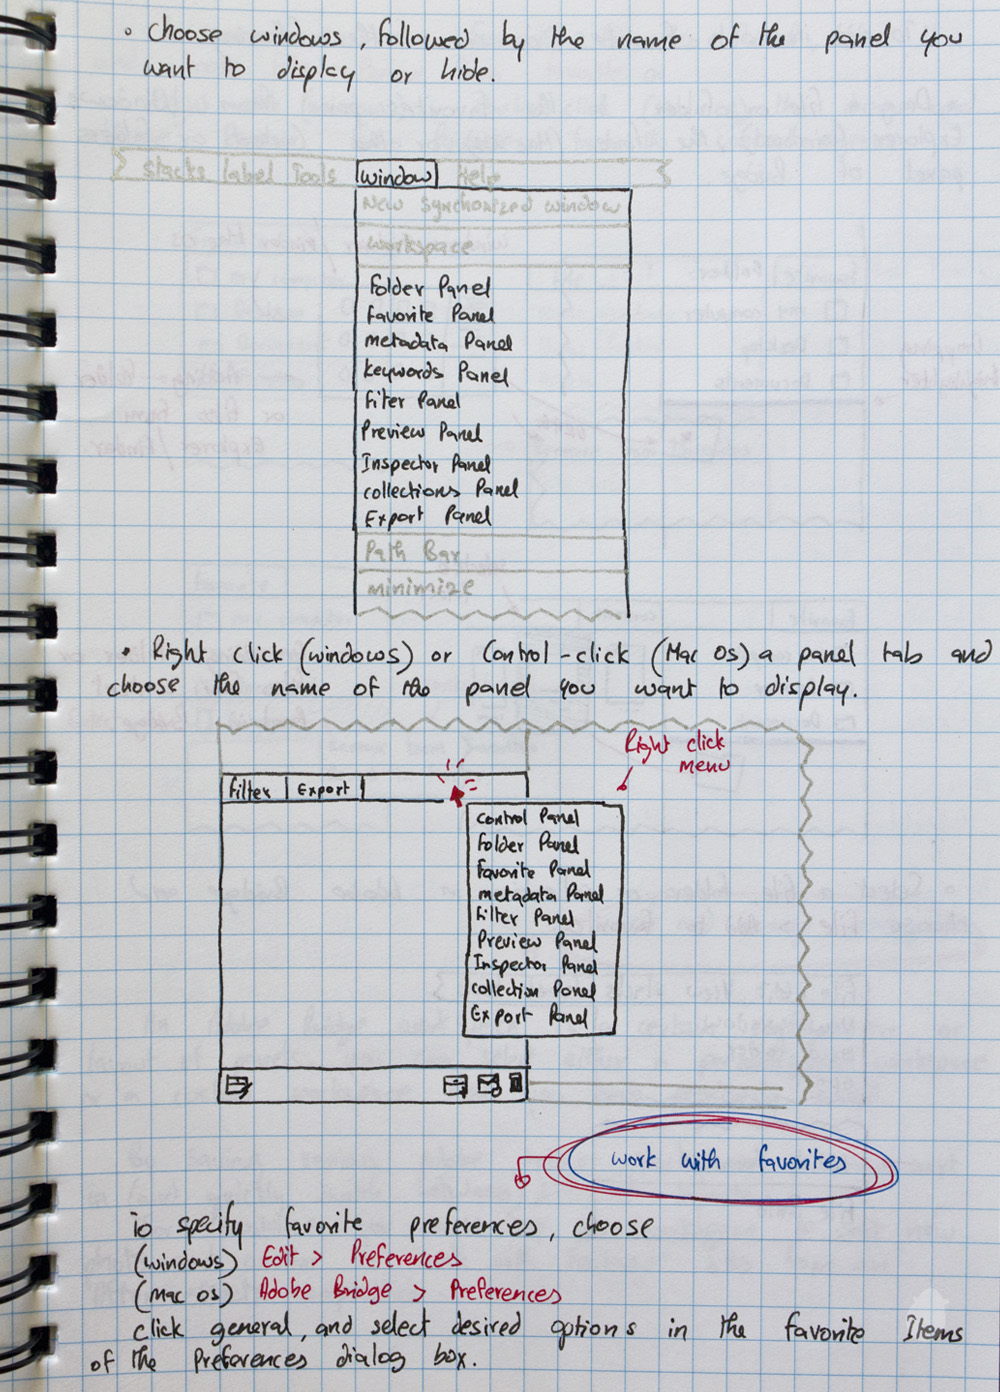 • Choose windows, followed by the name of the panel you
want to display or hide.
Stacks label Tools window Help
New synchronized window
workspace
Folder Panel
favorite Panel
metadata Panel
keywords Panel
Filter Panel
Preview Panel
Inspector Panel
collections Panel
Export Panel
Path Bar
minimize
• Right click (windows) or Control-click (Mac Os) a panel tab and
choose the name of the panel you want to display.
Right click
menu
Filter Export
control Panel
Folder Panel
Favorite Panel
metadata Panel
Filter Panel
Preview Panel
Inspector Panel
collection Panel
Export Panel
work with favorites
To specify favorite preferences, choose
(windows) Edit > Preferences
(mac os) Adobe Bridge > Preferences
click general, and select desired options in the favorite Items
of the Preferences dialog box.